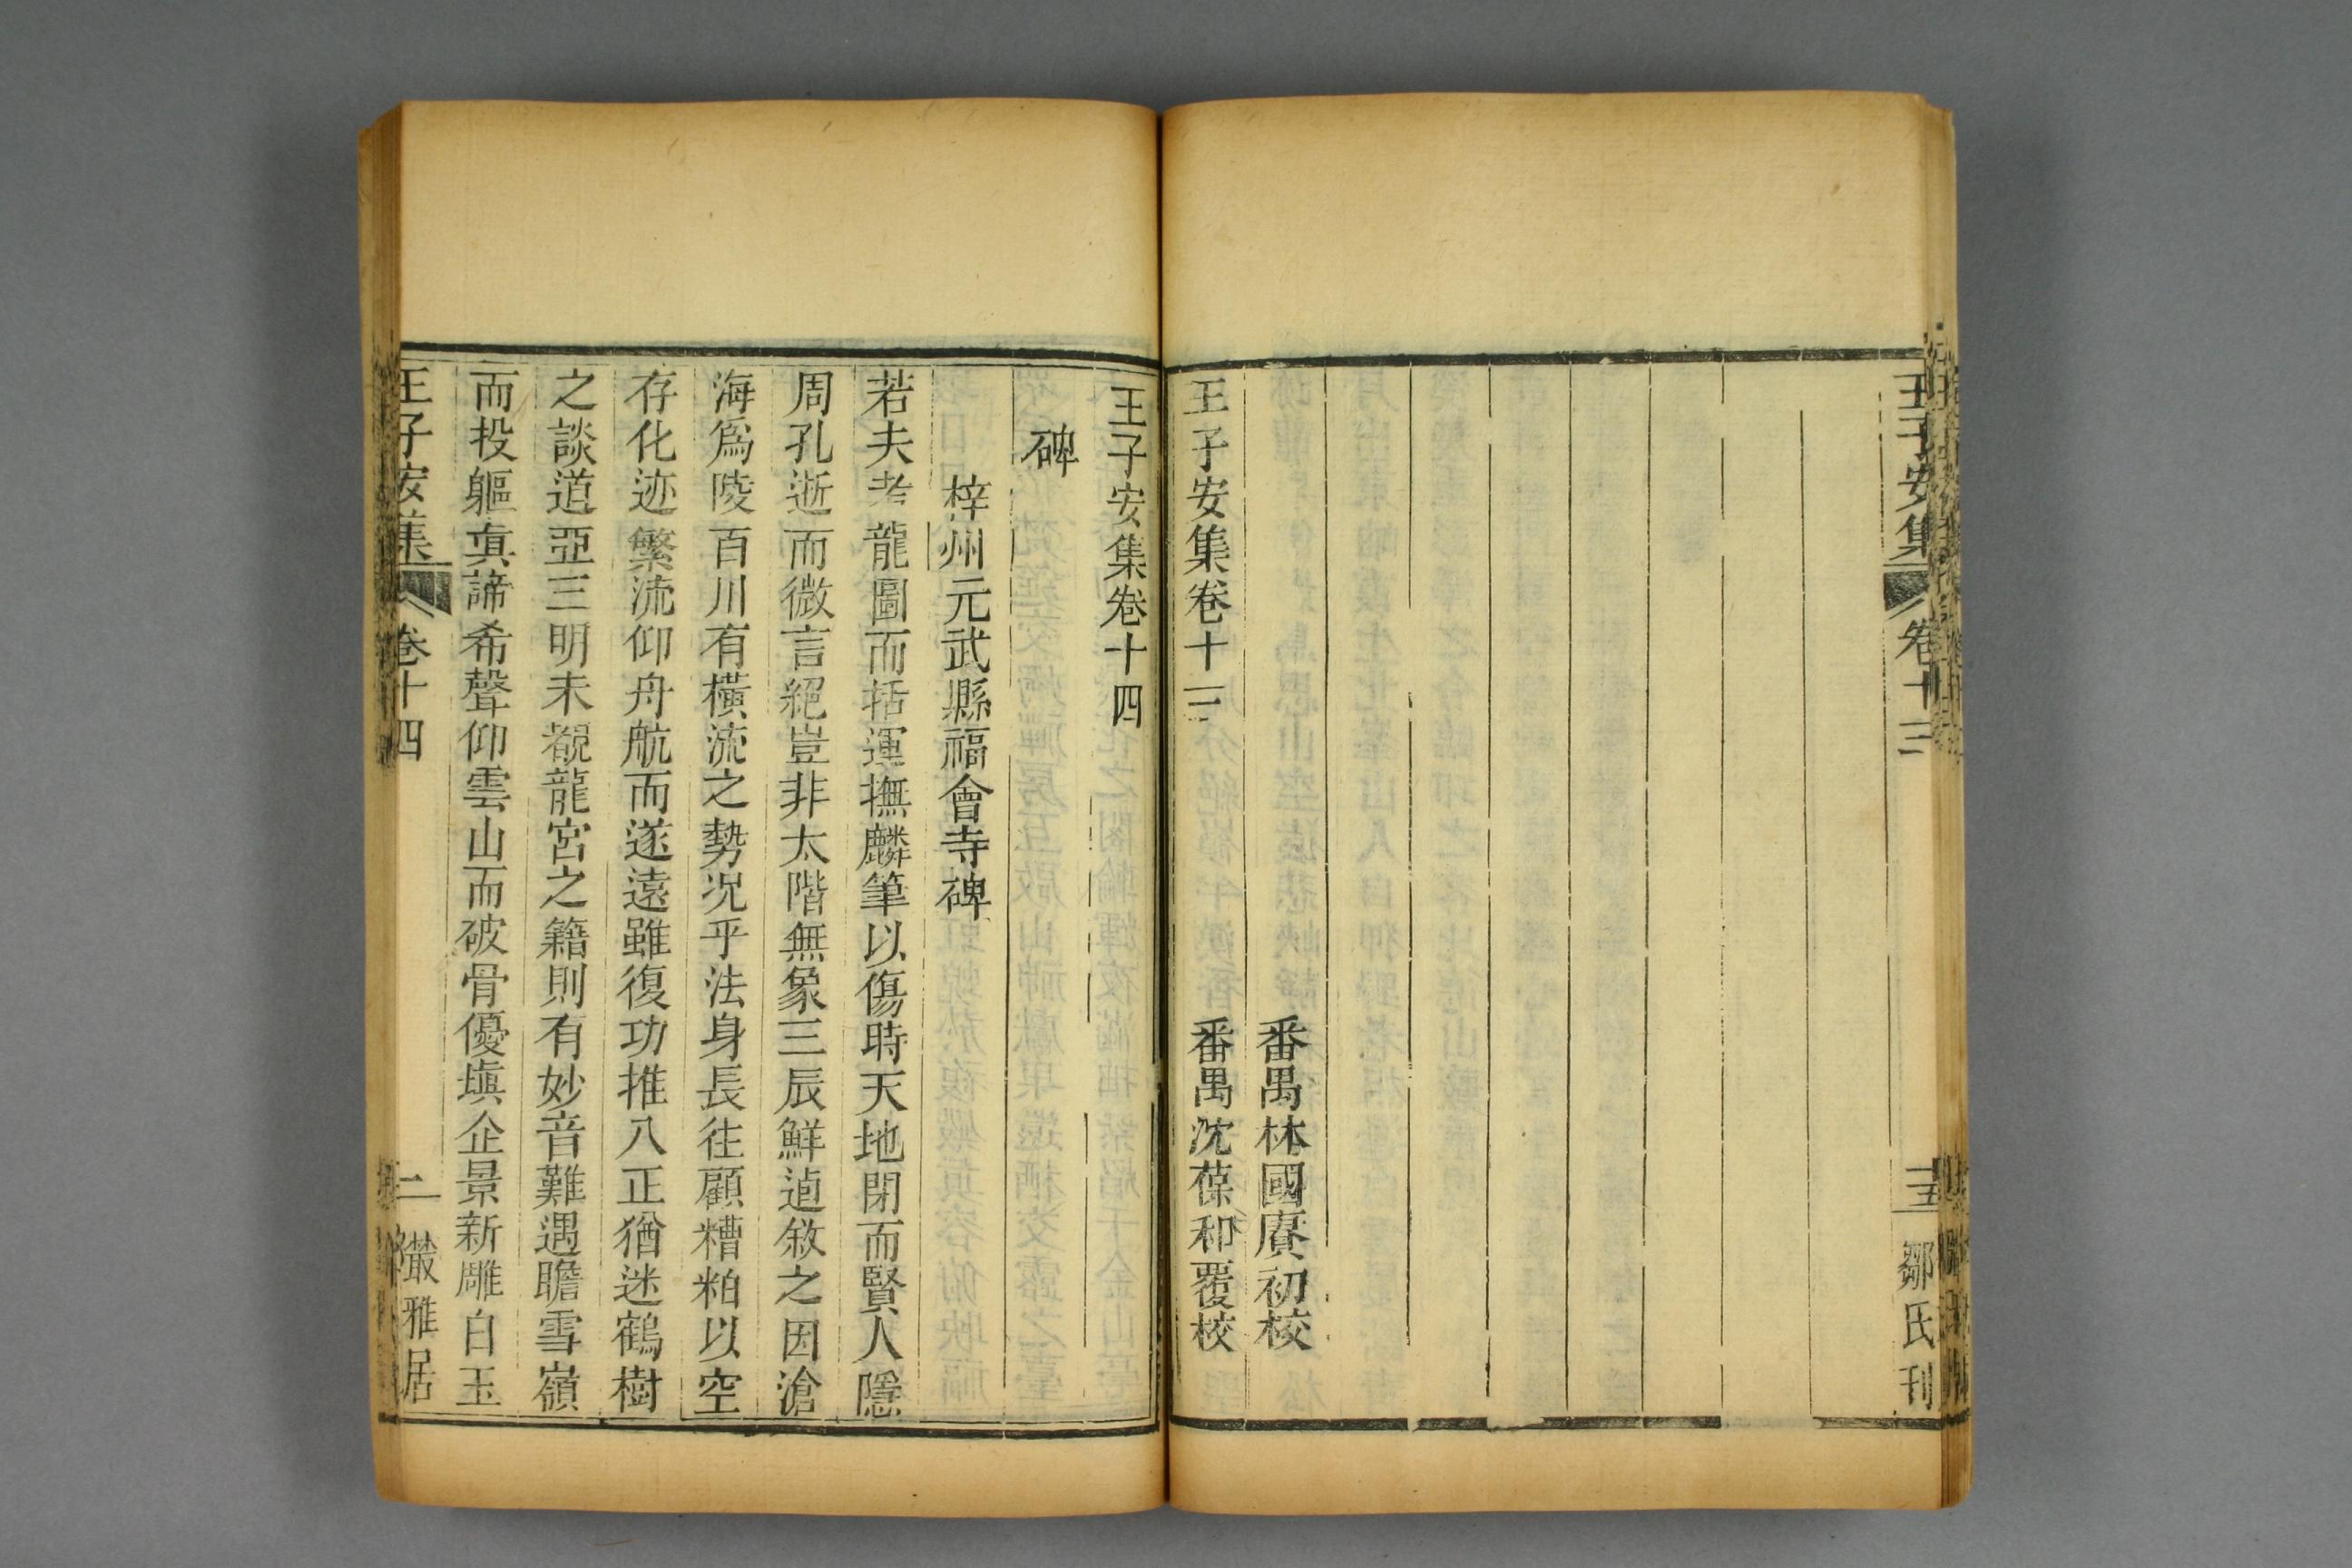 王子安集
卷十三
十五
鄒氏刊
番禺林國賡初校
王子安集卷十三
番禺沈葆和覆校
王子安集卷十四
碑
梓州元武縣福會寺碑
若夫考龍圖而括運撫麟筆以傷時天地閉而賢人隱
周孔逝而微言絕豈非太階無象三辰鮮逌敘之因滄
海爲陵百川有橫流之勢况乎法身長往顧糟粕以空
存化迹繁流仰舟航而遂遠雖復功推八正猶迷鶴樹
之談道亞三明未覩龍宮之籍則有妙音難遇瞻雪嶺
而投軀眞諦希聲仰雲山而破骨優塡企景新雕白玉
王子安集
卷十四
叢雅居